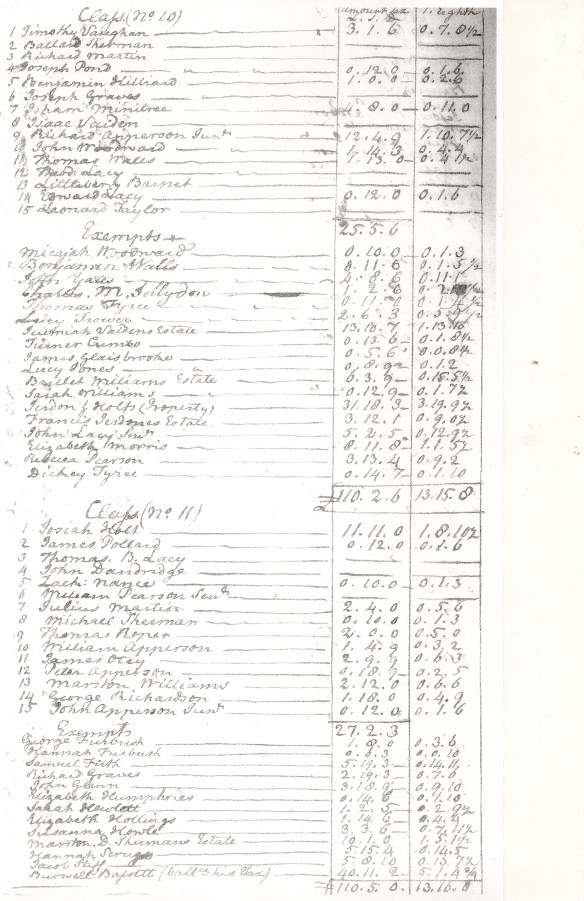 Class (No 10) amount tax 1. Eighth
1 Timothy Vaughan 3.1.6 0.7.8½
2 Ballard Sherman
3 Richard Martin
4 Joseph Pond 0.12.0 0.1.6
5 Benjamin Hilliard 1.0.0 0.2.6
6 Joseph Graves
7 Isham Minitree 4.8.0 0.11.0
8 Isaac Vaiden
9 Richard Apperson Junr 12.4.9 1.10.7½
10 John Woodward 1.14.3 0.4.4
11 Thomas Walls 1.13.0 0.4.1½
12 Lacy
13 Littleberry Barnet
14 Edward Lacy 0.12.0 0.1.6
15 Leonard Taylor
25.5.6
Exempts
Micajah Woodward 0.10.0 0.1.3
Benjamin Walls 0.11.6 0.1.5½
John 4.8.6
Charles. M.
Thomas Tyree 0.11.0
Lucy Trower 2.6.3
Jeremiah Vaidens Estate 13.10.7
Turner Cumbo 0.13.6 0.1.8½
James Glasbrooke 0.5.6 0.0.8½
Lucy Jones 0.8.9 0.1.2
Bartlet Williams Estate 6.3.9 0.15.5½
Sarah Williams 0.12.9 0.1.7½
Jerdon & Holts (Property) 31.18.3 3.19.9½
Francis Jerdones Estate 3.12.1 0.9.0½
John Lacy Senr 5.2.5 0.12.9½
Elizabeth Morris 8.11.8 1.1.5½
Rebecca Pearson 3.13.4 0.9.2
Dickey Tyree 0.14.7 0.1.10
£110.2.6 13.15.8
Class (No 11)
1 Josiah Holt 11.11.0 1.8.10½
2 James Pollard 0.12.0 0.1.6
3 Thomas. B. Lacy
4 John Dandridge
5 Zach: Nance 0.10.0 0.1.3
6 William Pearson Senr
7 Julius Martin 2.4.0 0.5.6
8 Michael Sherman 0.10.0 0.1.3
9 Thomas Roper 2.0.0 0.5.0
10 William Apperson 1.4.9 0.3.2
11 James Otey 2.9.9 0.6.3
12 Apperson 0.18.9 0.2.5
13 Marston Williams 2.12.0 0.6.6
14 George Richardson 1.18.0 0.4.9
15 John Apperson Junr 0.12.0 0.1.6
27.2.3
Exempts
George Furbush 1.8.0 0.3.6
Hannah Furbush 0.6.3 0.0.10
Samuel Firth 5.19.3 0.14.11
Richard Graves 2.19.3 0.7.6
John Glenn 3.18.9 0.9.10
Elizabeth Humphries 0.14.6 0.1.10
Sarah Hewlett 1.2.5
Elizabeth Hollings 1.14.6 0.4.4
Susanna Howle 3.3.6 0.7.11½
Marston. D. Shermans Estate 10.1.0 1.5.1½
Hannah 5.15.4 0.14.5
Jacob 5.8.10 0.13.7½
Burwell Bassett (ballce his Tax) 40.11.2 5.1.4¾
£110.5.0 13.16.8